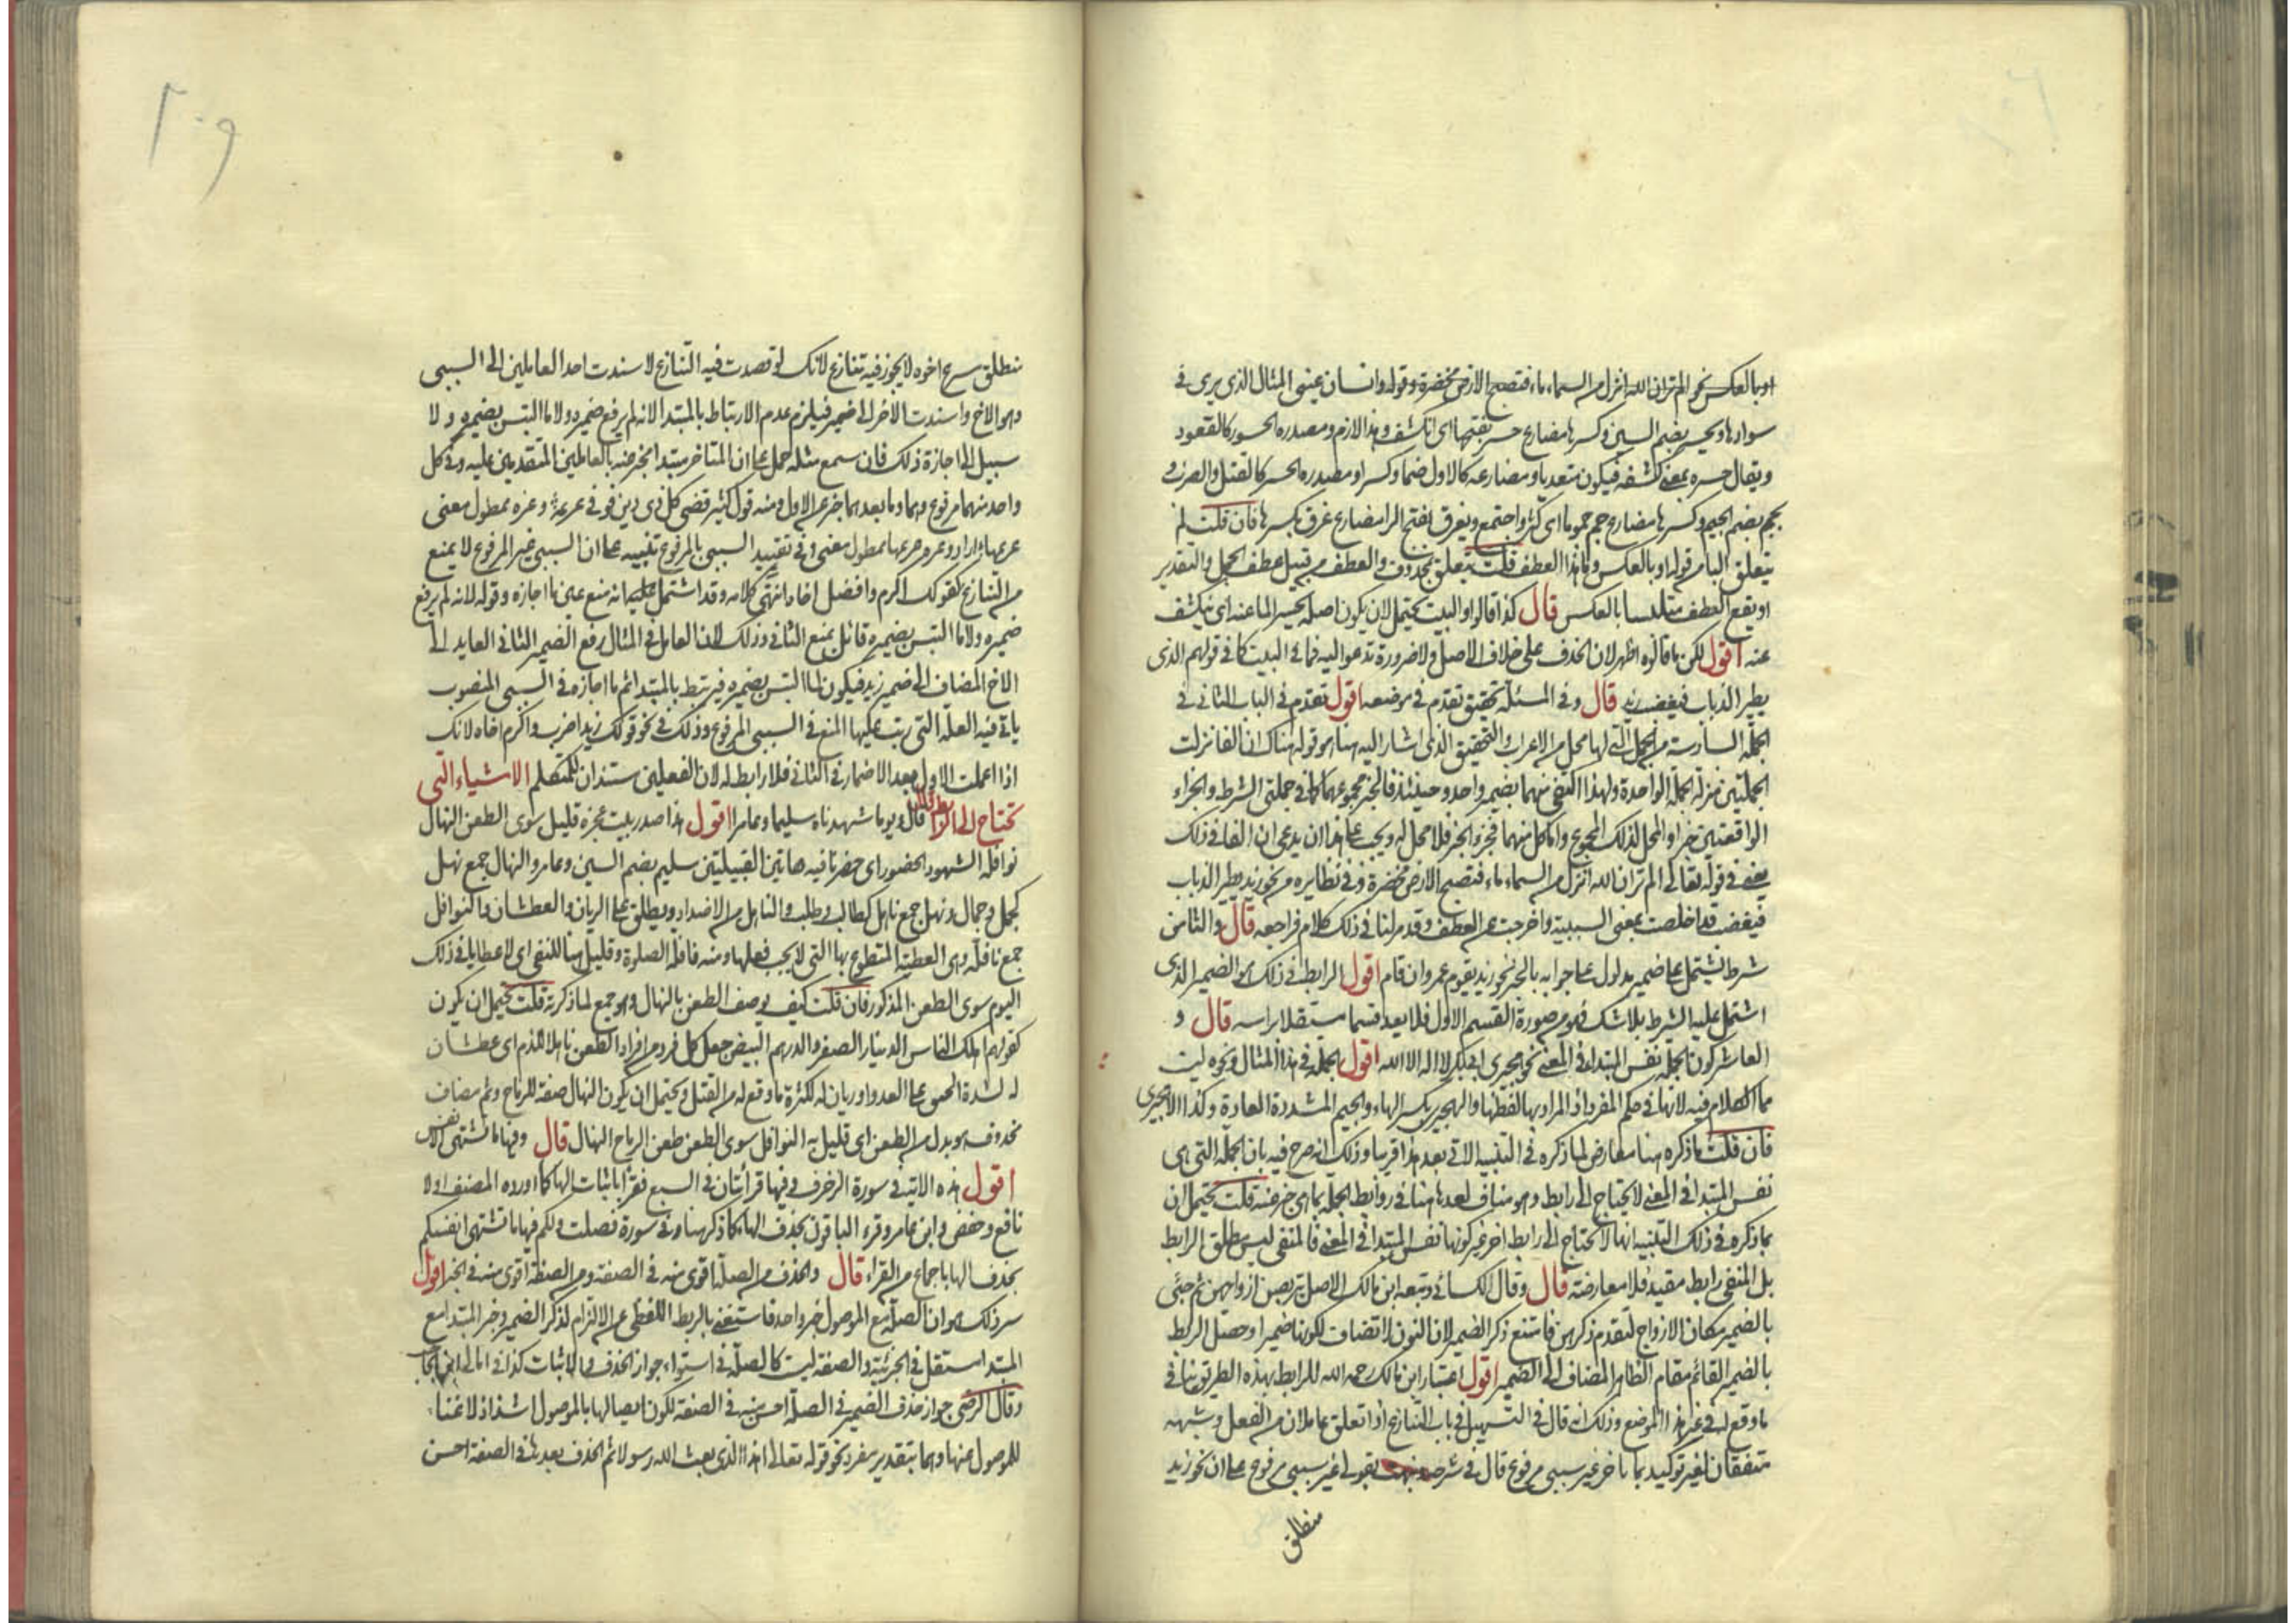 او بالعكس نحو الم تر ان الله انزل من السماء ماء فتصبح الارض مخضرة وقوله وانسان عيني المثال الذي يرى في
سوادها ويحسر بضم السين وكسرها مضارع حسر بفتحها اي انكشف وهذا لازم ومصدره الحسور كالقعود
ويقال حسره بمعنى كشفه فيكون متعديا ومضارعه كالاول ضما وكسرا ومصدره الحسر كالقتل والضرب
يجم بضم الجيم وكسرها مضارع جم جموما اي كثر واجتمع ويغرق بفتح الرا مضارع غرق بكسرها فان قلت بم
يتعلق البا من قوله او بالعكس وما هذا العطف قلت يتعلق بمحذوف والعطف من قبيل عطف الجمل والتقدير
او يقع العطف متلبسا بالعكس قال كذا قالوا والبيت يحتمل لان يكون اصله يحسر الماء عنه اي ينكشف
عنه اقول لكن ما قالوه اظهر لان الحذف على خلاف الاصل ولا ضرورة تدعو اليه فما في البيت كما في قولهم الذي
يطير الذباب فيغضب زيد قال وفي المسئلة تحقيق تقدم في موضعه اقول تقدم في الباب الثاني في
الجملة السادسة من الجمل التي لها محل من الاعراب والتحقيق الذي اشار اليه هنا هو قوله هناك ان الفا نزلت
الجملتين منزلة الجملة الواحدة ولهذا اكتفى منهما بضمير واحد وحينئذ فالخبر مجموعهما كما في جملتي الشرط والجزاء
الواقعتين خبرا والمحل لذلك المجموع واما كل منهما فجزء الخبر فلا محل له ويجب على هذا ان يدعى ان الفا في ذلك
يعني في قوله تعالى الم تر ان الله انزل من السماء ماء فتصبح الارض مخضرة وفي نظايره من نحو زيد يطير الذباب
فيغضب قد اخلصت بمعنى السببية واخرجت عن العطف وقد مر لنا في ذلك كلام فراجعه قال والثامن
شرط يشتمل على ضمير مدلول على جوابه بالخبر نحو زيد يقوم عمرو ان قام اقول الرابط في ذلك هو الضمير الذي
اشتمل عليه الشرط بلا شك فهو من صورة القسم الاول فلا يعد قسما مستقلا براسه قال و
العاشر كون الجملة نفس المبتدا في المعنى نحو هجيرى ابي بكر لا اله الا الله اقول الجملة في هذا المثال ونحوه ليست
مما الكلام فيه لانها في حكم المفرد اذ المراد بها لفظها والهجيرى بكسر الهاء والجيم المشددة العادة وكذا الاهجيرى
فان قلت ما ذكره هنا معارض لما ذكره في التنبيه الاتي بعد هذا قريبا وذلك انه صرح فيه بان الجملة التي هي
نفس المبتدا في المعنى لا يحتاج الى رابط وهو مناف لعدها هنا في روابط الجملة بما هي خبر عنه قلت يحتمل ان
ما ذكره في ذلك التنبيه انها لا تحتاج الى رابط اخر غير كونها نفس المبتدا في المعنى فالمنفي ليس مطلق الرابط
بل المنفي رابط مقيد فلا معارضة قال وقال الكسائي وتبعه ابن مالك الاصل يتربصن ازواجهن ثم جئ
بالضمير مكان الازواج لتقدم ذكرهن فامتنع ذكر الضمير لان النون لا تضاف لكونها ضميرا وحصل الربط
بالضمير القائم مقام الظاهر المضاف الى الضمير اقول اعتبار ابن مالك رحمه الله للرابط بهذه الطريق ينافي
ما وقع له في غير هذا الموضع وذلك انه قال في التسهيل في باب التنازع اذا تعلق عاملان من الفعل وشبهه
متفقان لغير توكيد بما تاخر غير سببي مرفوع قال في شرحه ونبهت بقولي غير سببي مرفوع على ان نحو زيد
منطلق
٢٠٩
منطلق سرع اخوه لا يجوز فيه تنازع لانك لو قصدت فيه التنازع لاسندت احد العاملين الى السببي
وهو الاخ واسندت الاخر الى ضميره فيلزم عدم الارتباط بالمبتدا لانه لم يرفع ضميره ولا ما التبس بضميره ولا
سبيل الى اجازة ذلك فان سمع مثله حمل على ان المتاخر مبتدا مخبر عنه بالعاملين المتقدمين عليه وفي كل
واحد منهما مرفوع وهما وما بعدهما خبر عن الاول ومنه قول كثير قضى كل ذي دين فوفى غريمه وعزة ممطول معنى
غريمها اراد وعزة غريمها ممطول معنى وفي تقييد السببي بالمرفوع تنبيه على ان السببي غير المرفوع لا يمنع
من التنازع كقولك زيد اكرم وافضل اخاه انتهى كلامه وقد اشتمل على انه منع عين ما اجازه وقوله لانه لم يرفع
ضميره ولا ما التبس بضميره قائل بمنع الثاني وذلك لان العامل في المثال رفع الضمير الثاني العايد الى
الاخ المضاف الى ضمير زيد فيكون لما التبس بضميره فيرتبط بالمبتدا ثم ما اجازه في السببي المنصوب
ياتي فيه العلة التي رتب عليها المنع في السببي المرفوع وذلك في نحو قولك زيد اضرب واكرم اخاه لانك
اذا اعملت الاول بعد الاضمار في الثاني فلا رابط له لان الفعلين مسندان للمتكلم الاشياء التي
تحتاج الى الرابط قال ويوما شهدناه سليما وعامرا اقول هذا صدر بيت عجزه قليل سوى الطعن النهال
نوافله الشهود الحضور اي حضرنا فيه هاتين القبيلتين سليم بضم السين وعامر والنهال جمع نهل
كجمل وجمال ونهل جمع ناهل كطالب وطلب والناهل من الاضداد ويطلق على الريان والعطشان والنوافل
جمع نافلة وهي العطية المتطوع بها التي لا يجب فعلها ومنه نافلة الصلوة وقليل هنا للنفي اي لا عطايا في ذلك
اليوم سوى الطعن المذكور فان قلت كيف يوصف الطعن بالنهال وهو جمع لما ذكرته قلت يحتمل ان يكون
كقولهم اهلك الناس الدينار الصفر والدرهم البيض جعل كل فرد من افراد الطعن ناهلا للدم اي عطشان
له لشدة الحنق على العدو او ريان له لكثرة ما وقع له من القتل ويحتمل ان يكون النهال صفة للرماح وثم مضاف
محذوف هو بدل من الطعن اي قليل به النوافل سوى الطعن طعن الرماح النهال قال وفيها ما تشتهي الانفس
اقول هذه الاية في سورة الزخرف وفيها قرائتان في السبع فقرأ باثبات الهاء كما اورده المصنف اولا
نافع وحفص وابن عامر وقرء الباقون بحذف الهاء كما ذكر هنا وفي سورة فصلت ولكم فيها ما تشتهي انفسكم
بحذف الها باجماع من القراء قال والحذف من الصلة اقوى منه في الصفة ومن الصفة اقوى منه في الخبر اقول
سر ذلك هو ان الصلة مع الموصول جزء واحد فاستغني بالربط اللفظي عن الالتزام لذكر الضمير وخبر المبتدا مع
المبتدا مستقل في الجزئية والصفة ليست كالصلة في استواء جواز الحذف والاثبات كذا في امالي ابن الحاجب
وقال الرضي جواز حذف الضمير في الصلة احسن منه في الصفة لكون اتصالها بالموصول اشد اذ لا غنا
للموصول عنها وهما بتقدير مفرد نحو قوله تعالى اهذا الذي بعث الله رسولا ثم الحذف بعدها في الصفة احسن